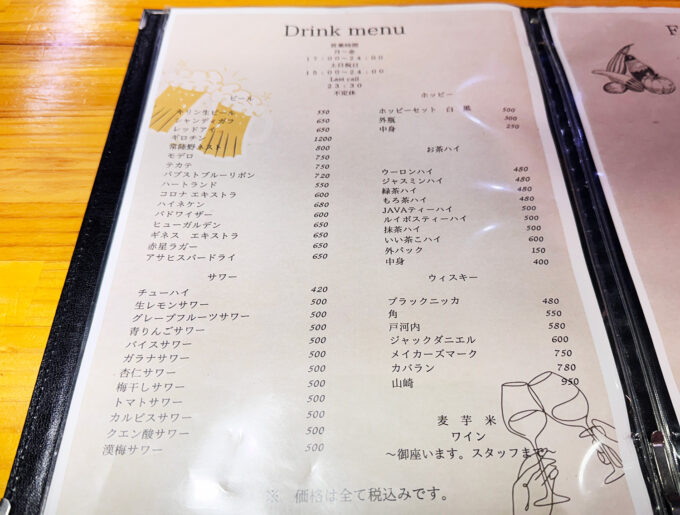 Drink menu
営業時間
月－金
17:00~24:00
土日祝日
15:00~24:00
Last call
23:30
不定休
ビール
キリン生ビール 550
シャンディガフ 650
レッドアイ 650
ギロチン 1200
常陸野ネスト 800
モデロ 750
テカテ 750
パブストブルーリボン 720
ハートランド 550
コロナ エキストラ 600
ハイネケン 680
バドワイザー 600
ヒューガルデン 650
ギネス エキストラ 650
赤星ラガー 650
アサヒスパードライ 650
サワー
チューハイ 420
生レモンサワー 500
グレープフルーツサワー 500
青りんごサワー 500
バイスサワー 500
ガラナサワー 500
杏仁サワー 500
梅干しサワー 500
トマトサワー 500
カルピスサワー 500
クエン酸サワー 500
漢梅サワー 500
ホッピー
ホッピーセット 白 黒 500
外瓶 300
中身 250
お茶ハイ
ウーロンハイ 480
ジャスミンハイ 480
緑茶ハイ 480
もろ茶ハイ 480
JAVAティーハイ 500
ルイボスティーハイ 500
抹茶ハイ 500
いい茶こハイ 600
外パック 150
中身 400
ウィスキー
ブラックニッカ 480
角 550
戸河内 580
ジャックダニエル 600
メイカーズマーク 750
カバラン 780
山崎 950
麦 芋 米
ワイン
～御座います。スタッフまで～
※ 価格は全て税込みです。
F